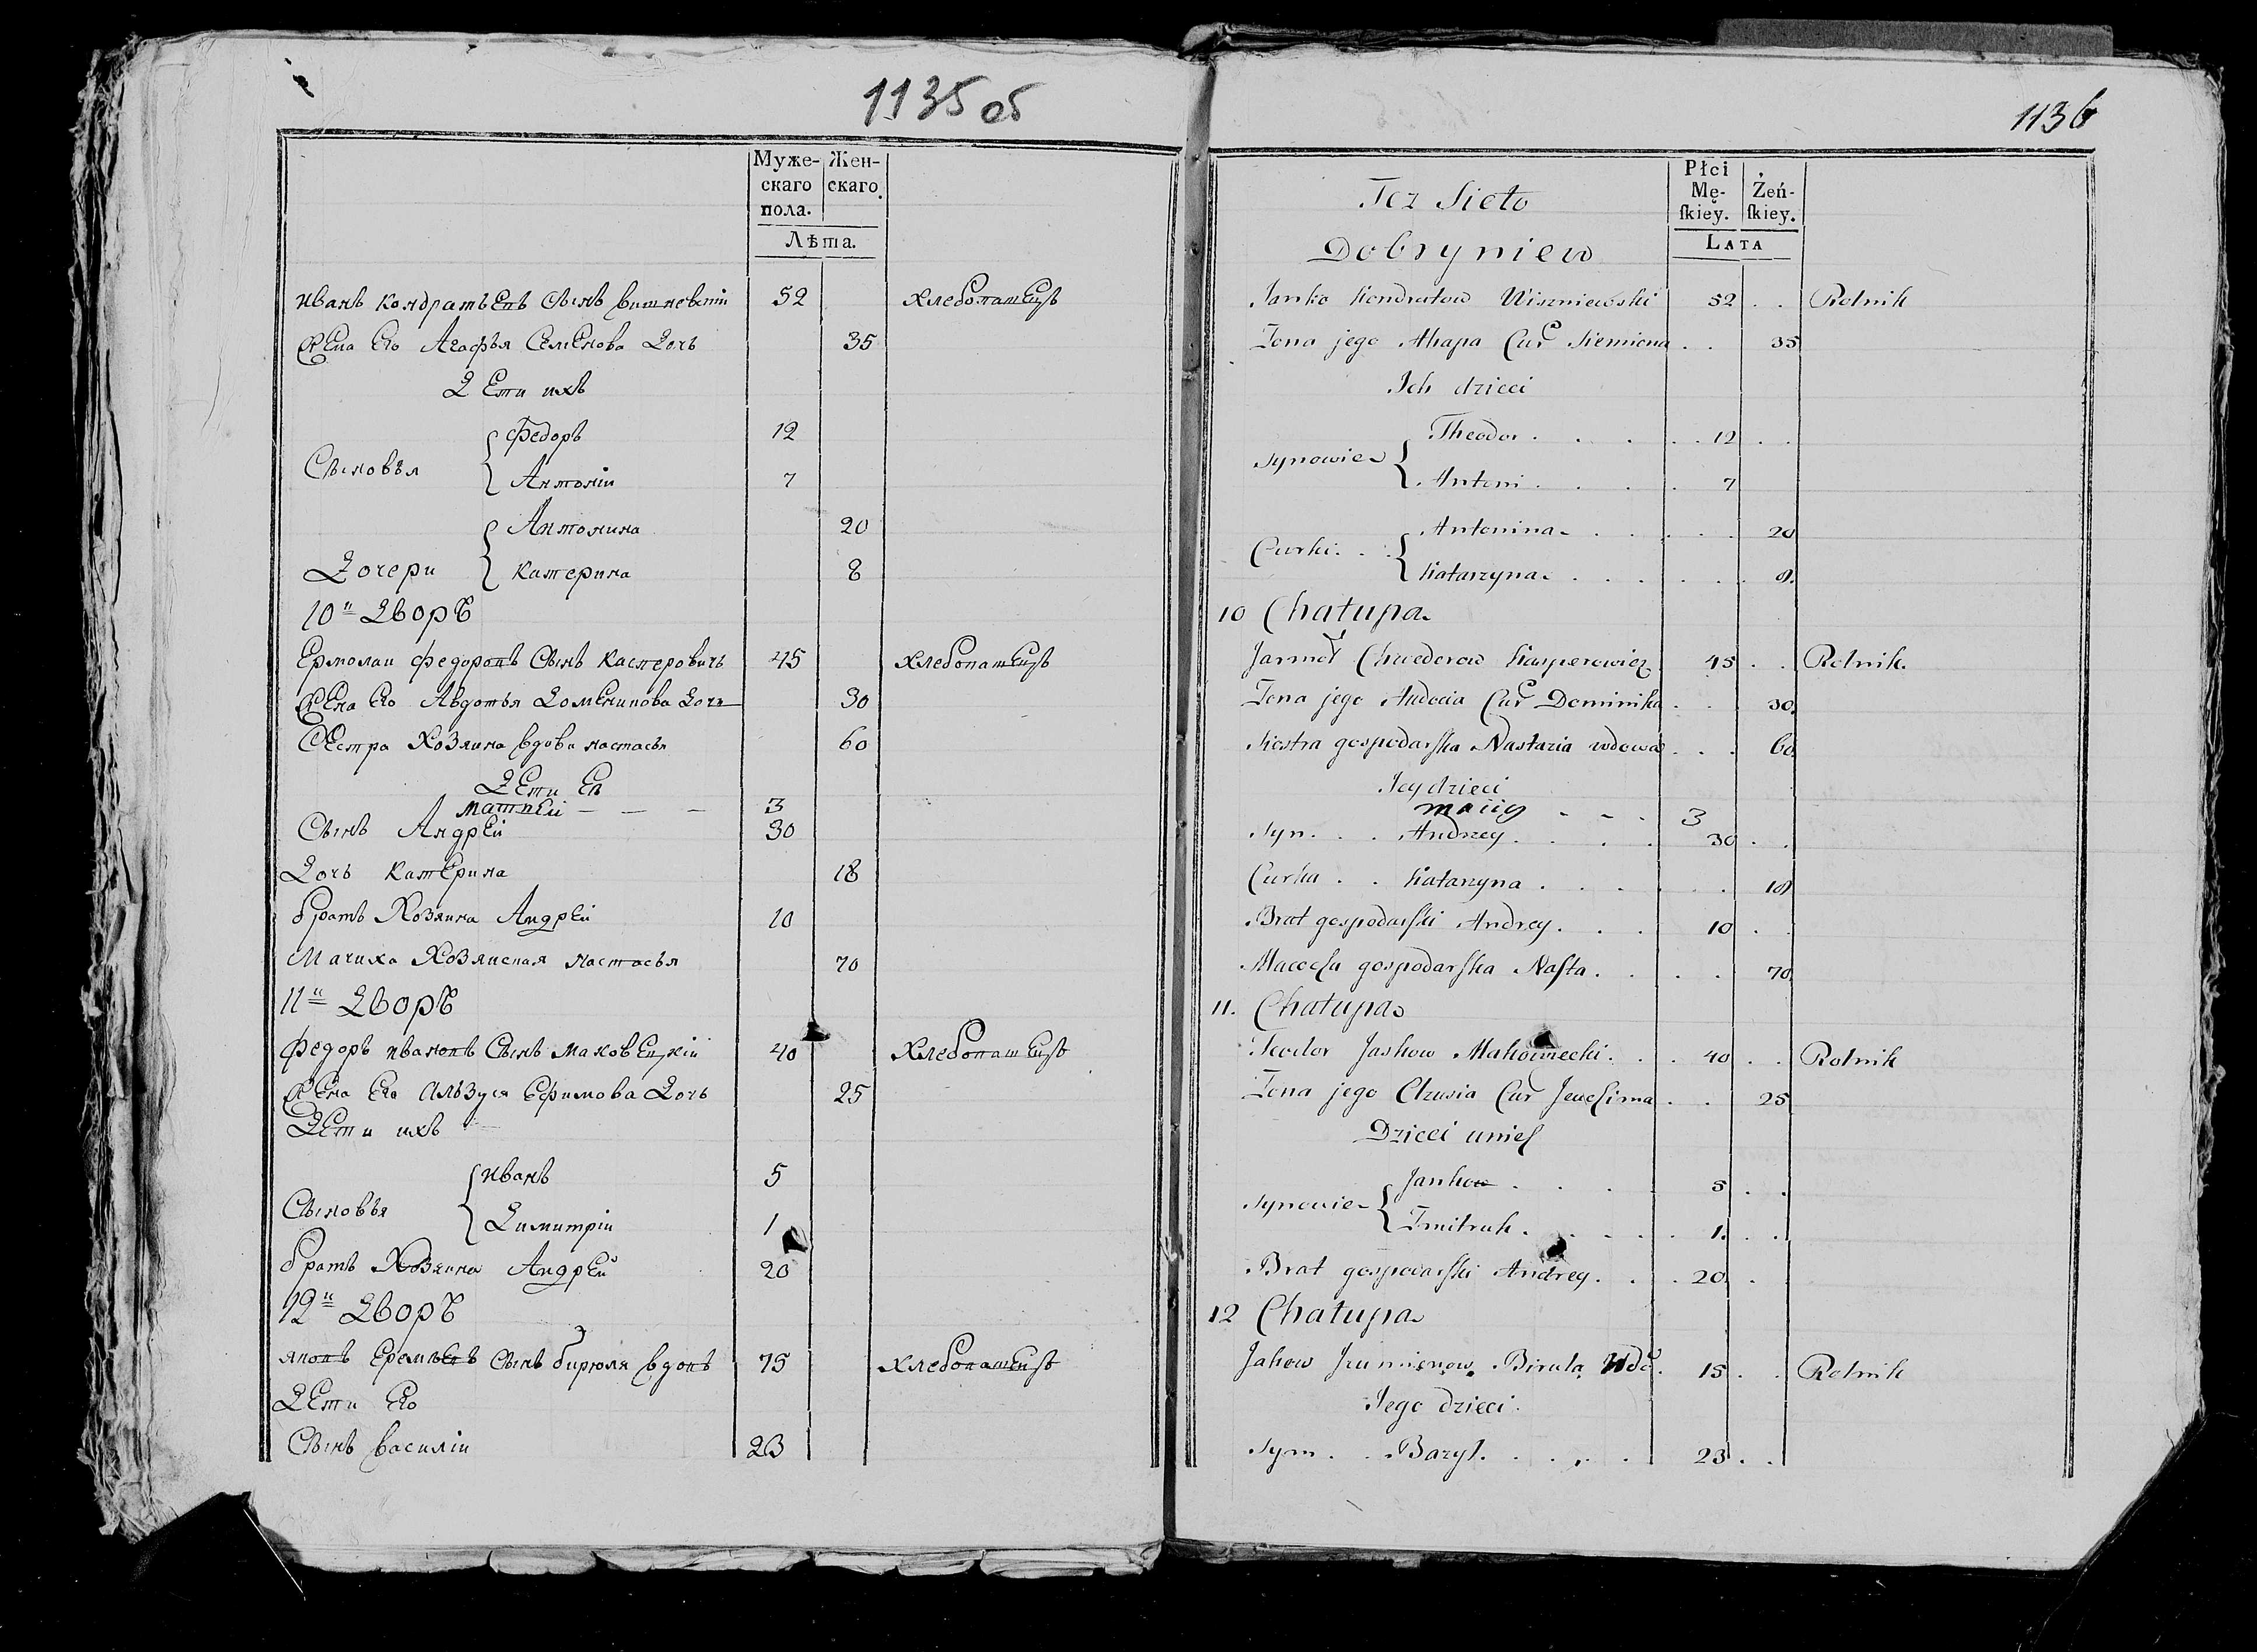 1135 об
Муже-
скаго
пола.
Жен-
скаго.
Лѣта.
иванъ кондратьевъ Сынъ вишневскіи 52 хлебопашецъ
жена его Агафья Семенова Дочь 35
Дети ихъ
Сыновья
Федоръ 12
Антоніи 7
Дочери
Антонина 20
Катерина 8
10й Дворъ
Ермолаи Федоровъ Сынъ касперовичъ 45 хлебопашецъ
жена его Авдотья Доменикова Дочь 30
Сестра Хозяина вдова настасья 60
Дети Ея
Матвеи 3
Сынъ Андреи 30
Дочь катерина 18
братъ Хозяина Андреи 10
Мачиха Хозяиская настасья 70
11й Дворъ
Федоръ ивановъ Сынъ маковецкіи 40 Хлебопашецъ
жена его алъзуся Ефимова Дочь 25
Дети ихъ
Сыновья
иванъ 5
Димитріи 1
братъ Хозяина Андрей 20
12й Дворъ
яковъ Еремѣевъ Сынъ бирюля вдовъ 75 хлебопашецъ
Дети Его
Сынъ василіи 23
1136
Płci
Mę-
ſkiey.
Żeń-
ſkiey.
LATA
Tez Sioło
Dobryniew
Janko Kondratow Wiszniewski 52 . . Rolnik
Zona jego Ahapa Cur Siemiona . . 35
Ich dzieci
Synowie
Theodor . . . . 12 . .
Antoni . . . . 7
Curki . .
Antonina . . . . . 20
Katarzyna . . . . . . 8.
10 Chałupa
Jarmoł Chwedorow Kasperowicz 45 . . Rolnik.
Zona jego Audocia Cur Dominika . . 30.
Siostra gospodarſka Nastazia wdowa . . . 60.
Jey dzieci
maciey - - . 3
Syn . . . Andrzey . . . . 30 . .
Curka . . Katarzyna . . . . . . 18
Brat gospodarſki Andrey . . . 10 . .
Macocha gospodarſka Naſta . . . . 70.
11. Chałupa
Teodor Jaskow Makowiecki . . . 40 . . Rolnik
Zona jego Elzusia Cur Jeuchima . . 25
Dzieci unich
Synowie
Jankow . . . . 5 . .
Tmitruk . . . . . 1. . .
Brat gospodarſki Andrey . . . 20 .
12 Chałupa
Jakow Jeumienow Birula Wdo. 15 . . Rolnik
Jego dzieci.
Sym . . Bazyl . . . . . 23 . .